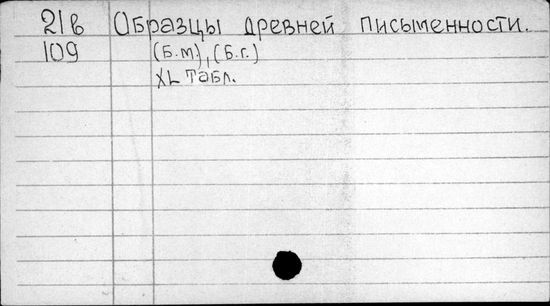 21в Образцы древней письменности.
109 (Б.м.), (Б.г.)
XL табл.